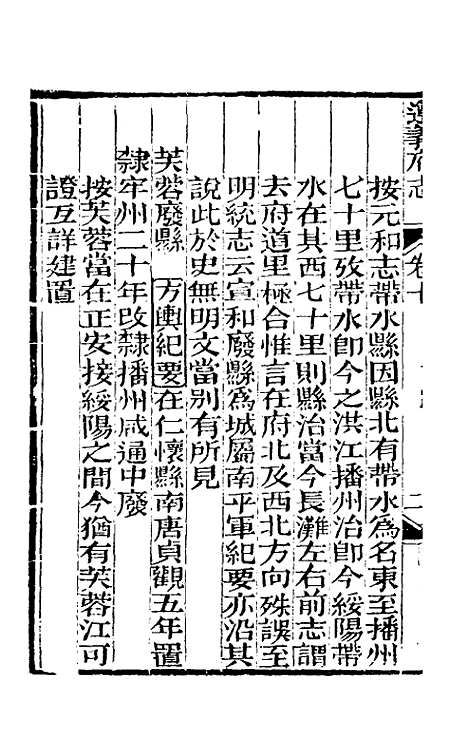 遵義府志　卷十　二
按元和志帶水縣因縣北有帶水為名東至播州
七十里攷帶水卽今之洪江播州治卽今綏陽帶
水在其西七十里則縣治當今長灘左右前志謂
去府道里極合惟言在府北及西北方向殊誤至
明統志云宣和廢縣為城屬南平軍紀要亦沿其
說此於史無明文當別有所見
芙蓉廢縣　方輿紀要在仁懷縣南唐貞觀五年置
隸牢州二十年改隸播州咸通中廢
按芙蓉當在正安接綏陽之間今猶有芙蓉江可
證互詳建置